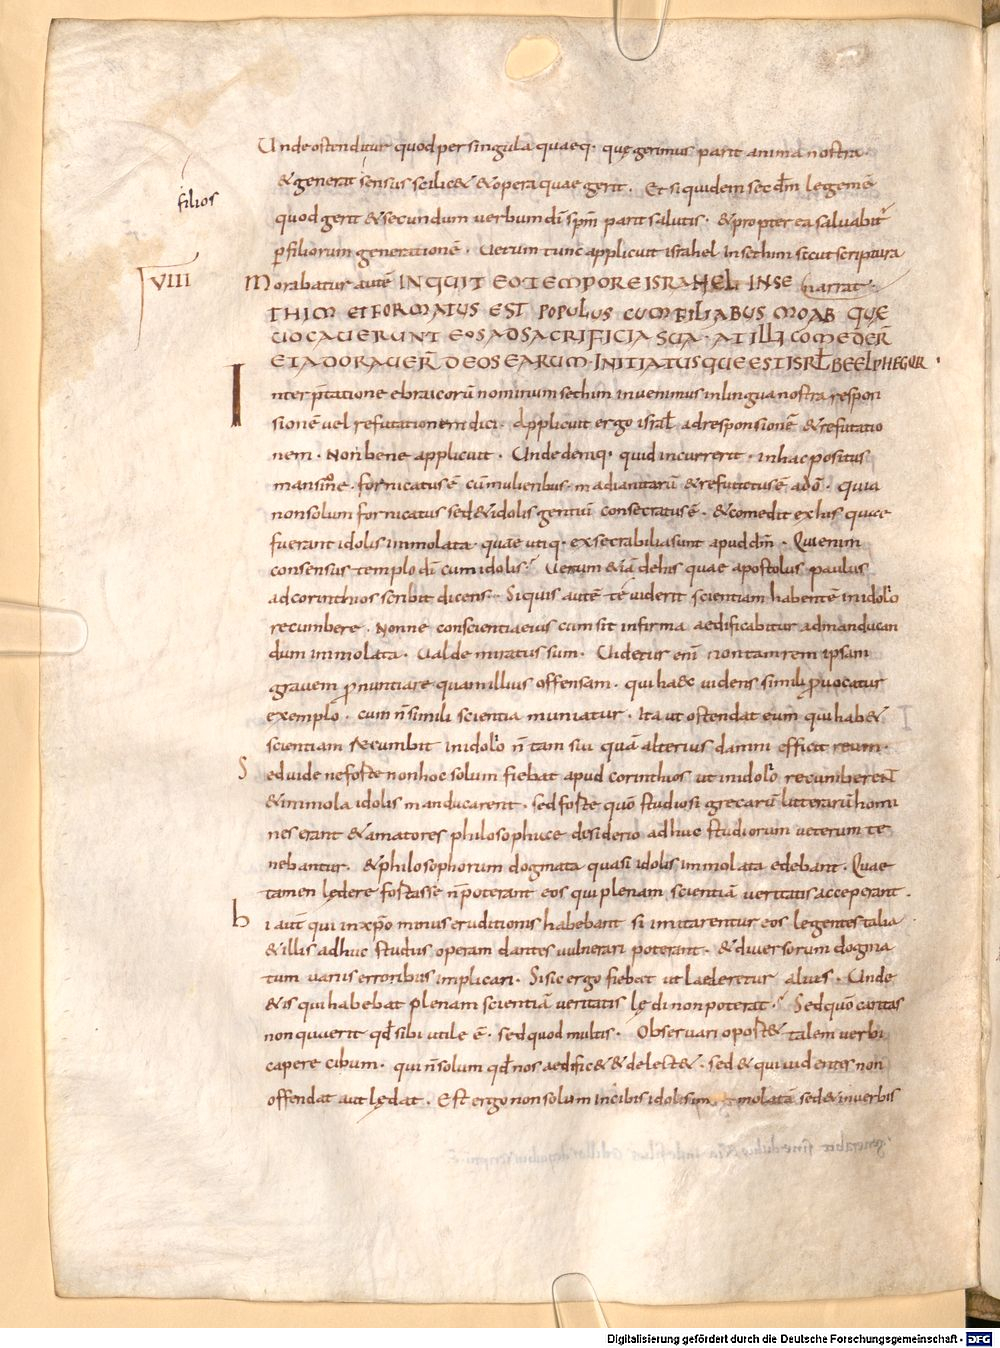 Unde ostenditur quod per singula quaeq· quę gerimus parit anima nostra·
filios
& generat sensus scilic& & opera quae gerit. Et siquidem sec dm̄ legem ē
quod gerit & secundum uerbum dī sp̄m parit salutis· & propter ea saluabit̄
p̄ filiorum generationē· Uerum tunc applicuit israhel in sethim sicut scriptura
narrat·
VIII
Morabatur autē INQUIT EO TEMPORE ISRAHEL IN SE
THIM ET FORMATUS EST POPULUS CUM FILIABUS MOAB QUĘ
UOCAUERUNT EOS AD SACRIFICIA SUA· AT ILLI COMEDER̄
ET ADORAUER̄ DEOS EARUM· INITIATUSQUE EST ISRL̄ BEELPHEGOR·
Interp̄tatione ebraicorū nominum sethim inuenimus in lingua nostra respon
sionē uel refutationem dici· Applicuit ergo isrl̄ ad responsionē & refutatio
nem· Non bene applicuit· Unde demq· quid incurrerit· in hac positus
mansione· fornicatus ē cū mulieribus madianitarū & refutatus ē a dō· Quia
non solum fornicatus sed & idolis gentiū consecratus ē· & comedit ex his quae
fuerant idolis immolata· quae utiq· exsecrabilia sunt apud dm̄· Qui enim
consensus templo dī cum idolis? Uerum & iā de his quae apostolus paulus
ad corinthios scribit dicens· Si quis autē te uiderit scientiam habentē in idolio
recumbere· Nonne conscientia eius cum sit infirma aedificabitur ad manducan
dum immolata· Ualde miratus sum· Uidetur enī non tam rem ipsam
grauem p̄nuntiare quam illius offensam· qui haec uidens simili p̄uocatur
exemplo· cum n̄ simili scientia muniatur· Ita ut ostendat eum qui hab&
scientiam recumbit in idolio n̄ tam sui quā alterius damni efficit reum·
Sed uide ne forte non hoc solum fiebat apud corinthios ut in idolio recumberent
& immola idolis manducarent· sed forte quō studiosi grecarū litterarū homi
nes erant & amatores philosophiae desiderio adhuc studiorum ueterum te
nebantur· & philosophorum dogmata quasi idolis immolata edebant· Quae
tamen lędere fortasse n̄ poterant eos qui plenam scientiā ueritatis acceperant·
hi aut̄ qui in xp̄o minus eruditionis habebant si imitarentur eos legentes talia
& illis adhuc studiis operam dantes uulnerari poterant· & diuersorum dogma
tum uariis erroribus implicari· Sic ergo fiebat ut laederetur alius· Unde
& is qui habebat plenam scientiā ueritatis lędi non poterat· Sed quō caritas
non quaerit qd̄ sibi utile ē· sed quod multis· Obseruari oport& talem uerbi
capere cibum· qui n̄ solum qd̄ nos aedific& & delect&· sed & qui uidentes non
offendat aut lędat· Est ergo non solum in cibis idolis immolatā sed & in uerbis
Digitalisierung gefördert durch die Deutsche Forschungsgemeinschaft - DFG